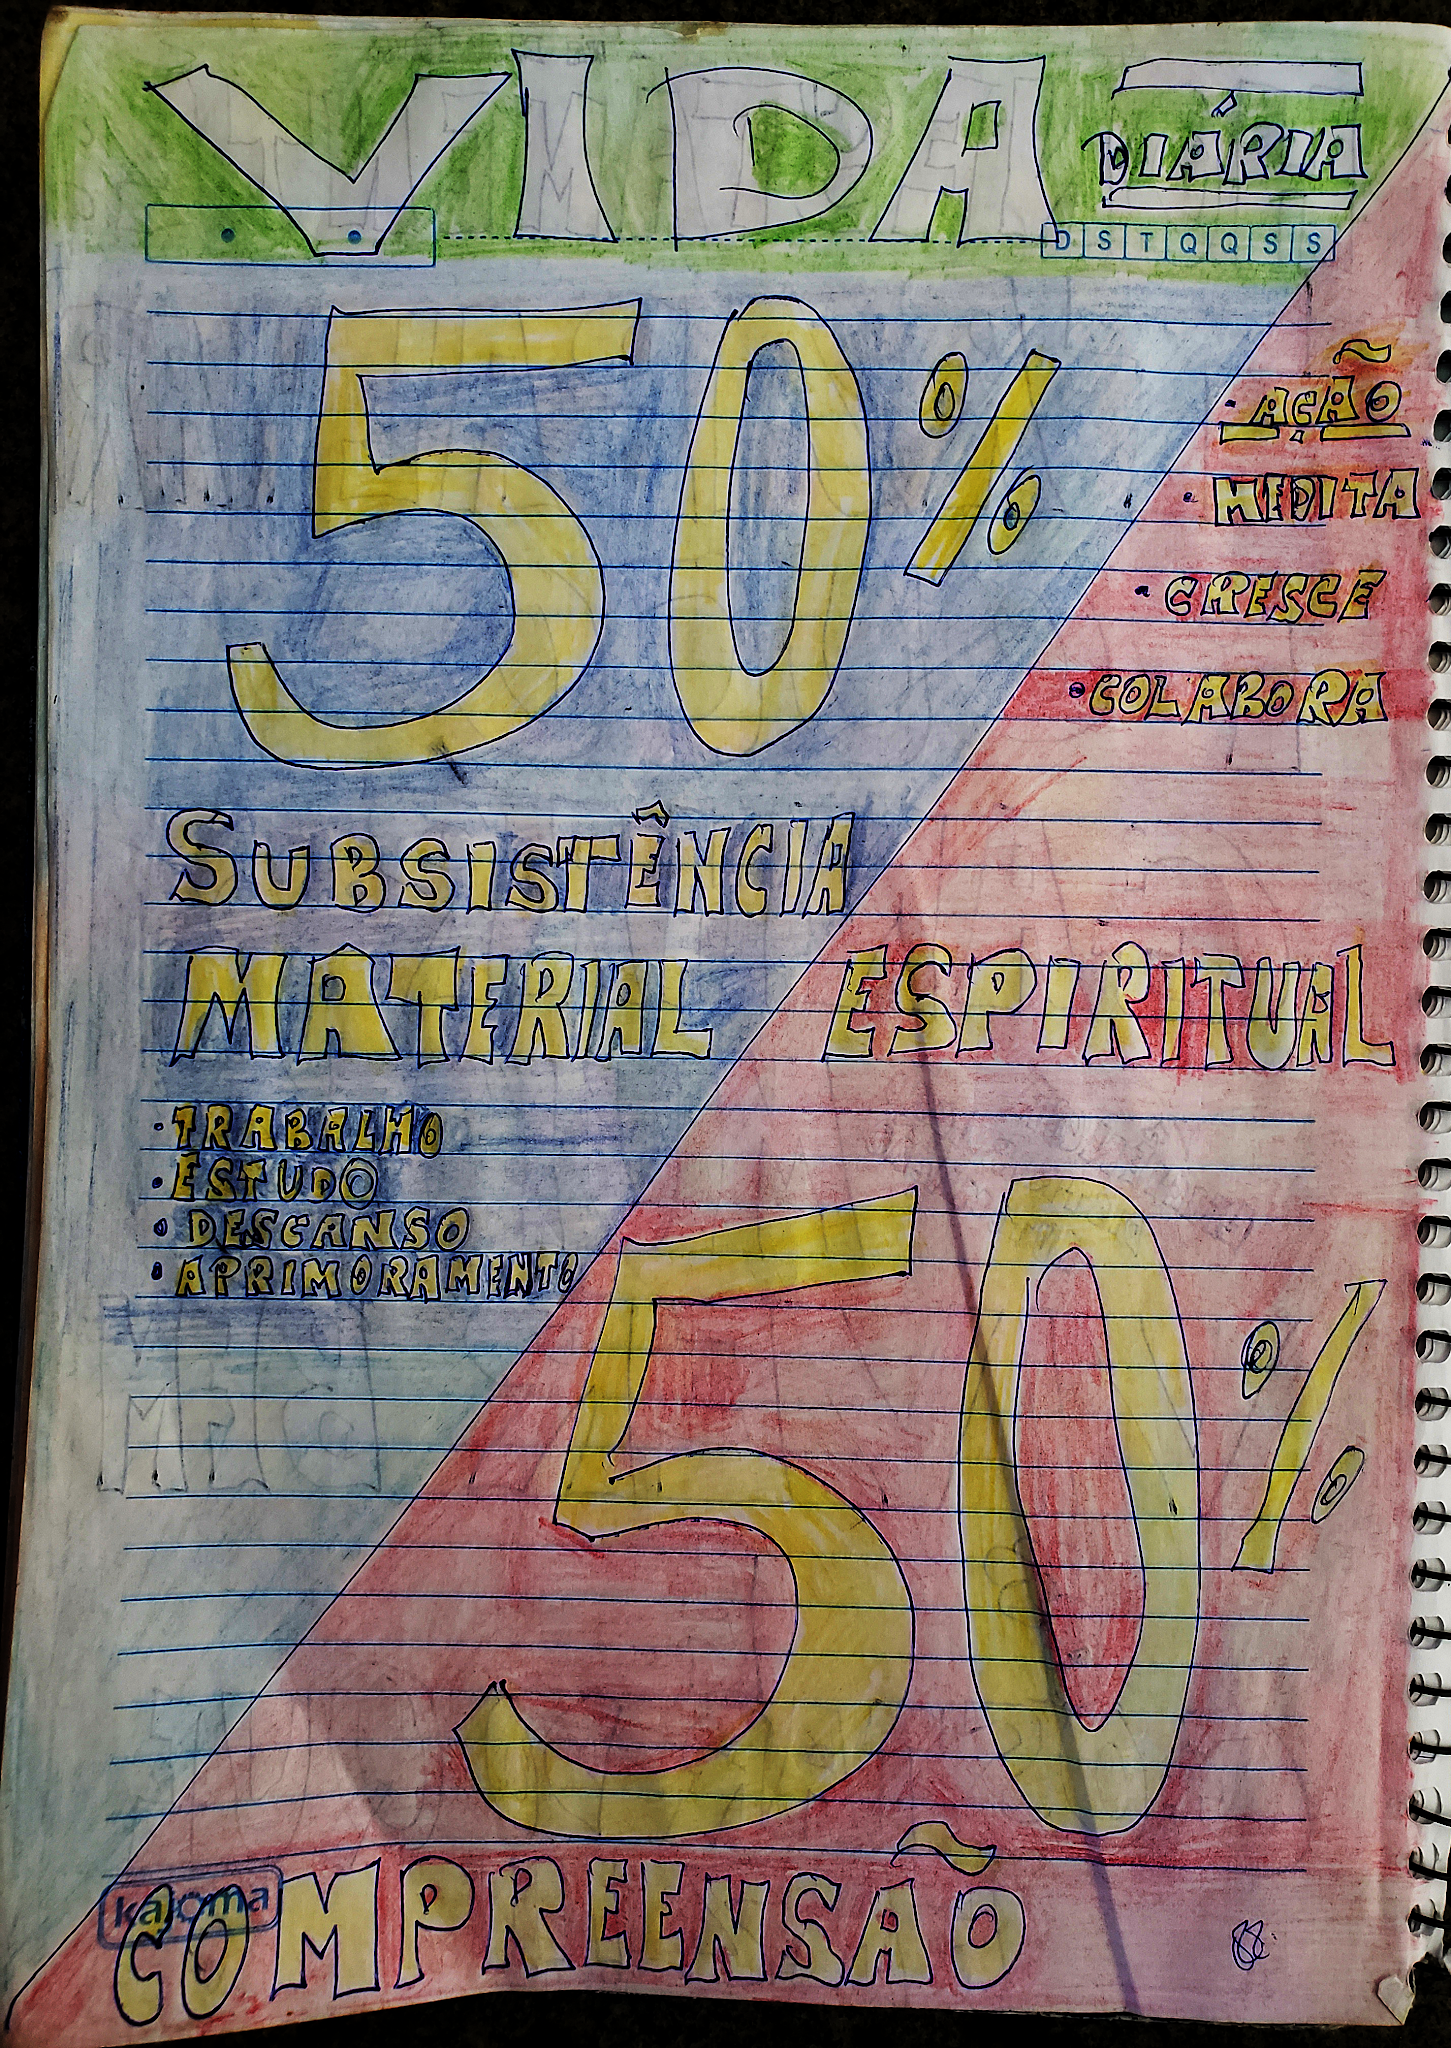 VIDA
DIÁRIA
D S T Q Q S S
50%
• AÇÃO
• MEDITA
• CRESCE
• COLABORA
SUBSISTÊNCIA
MATERIAL ESPIRITUAL
• TRABALHO
• ESTUDO
• DESCANSO
• APRIMORAMENTO
50%
kajoma
COMPREENSÃO